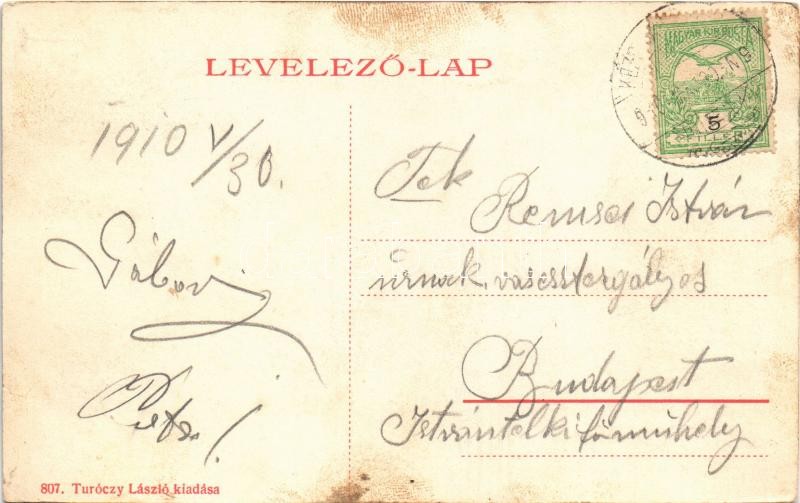 LEVELEZŐ-LAP
MAGYAR KIR. POSTA
5
1910 V/30.
Gábor
Tek
Remsei István
úrnak, vasesztergályos
Budapest
Istvántelki főműhely
807. Turóczy László kiadása